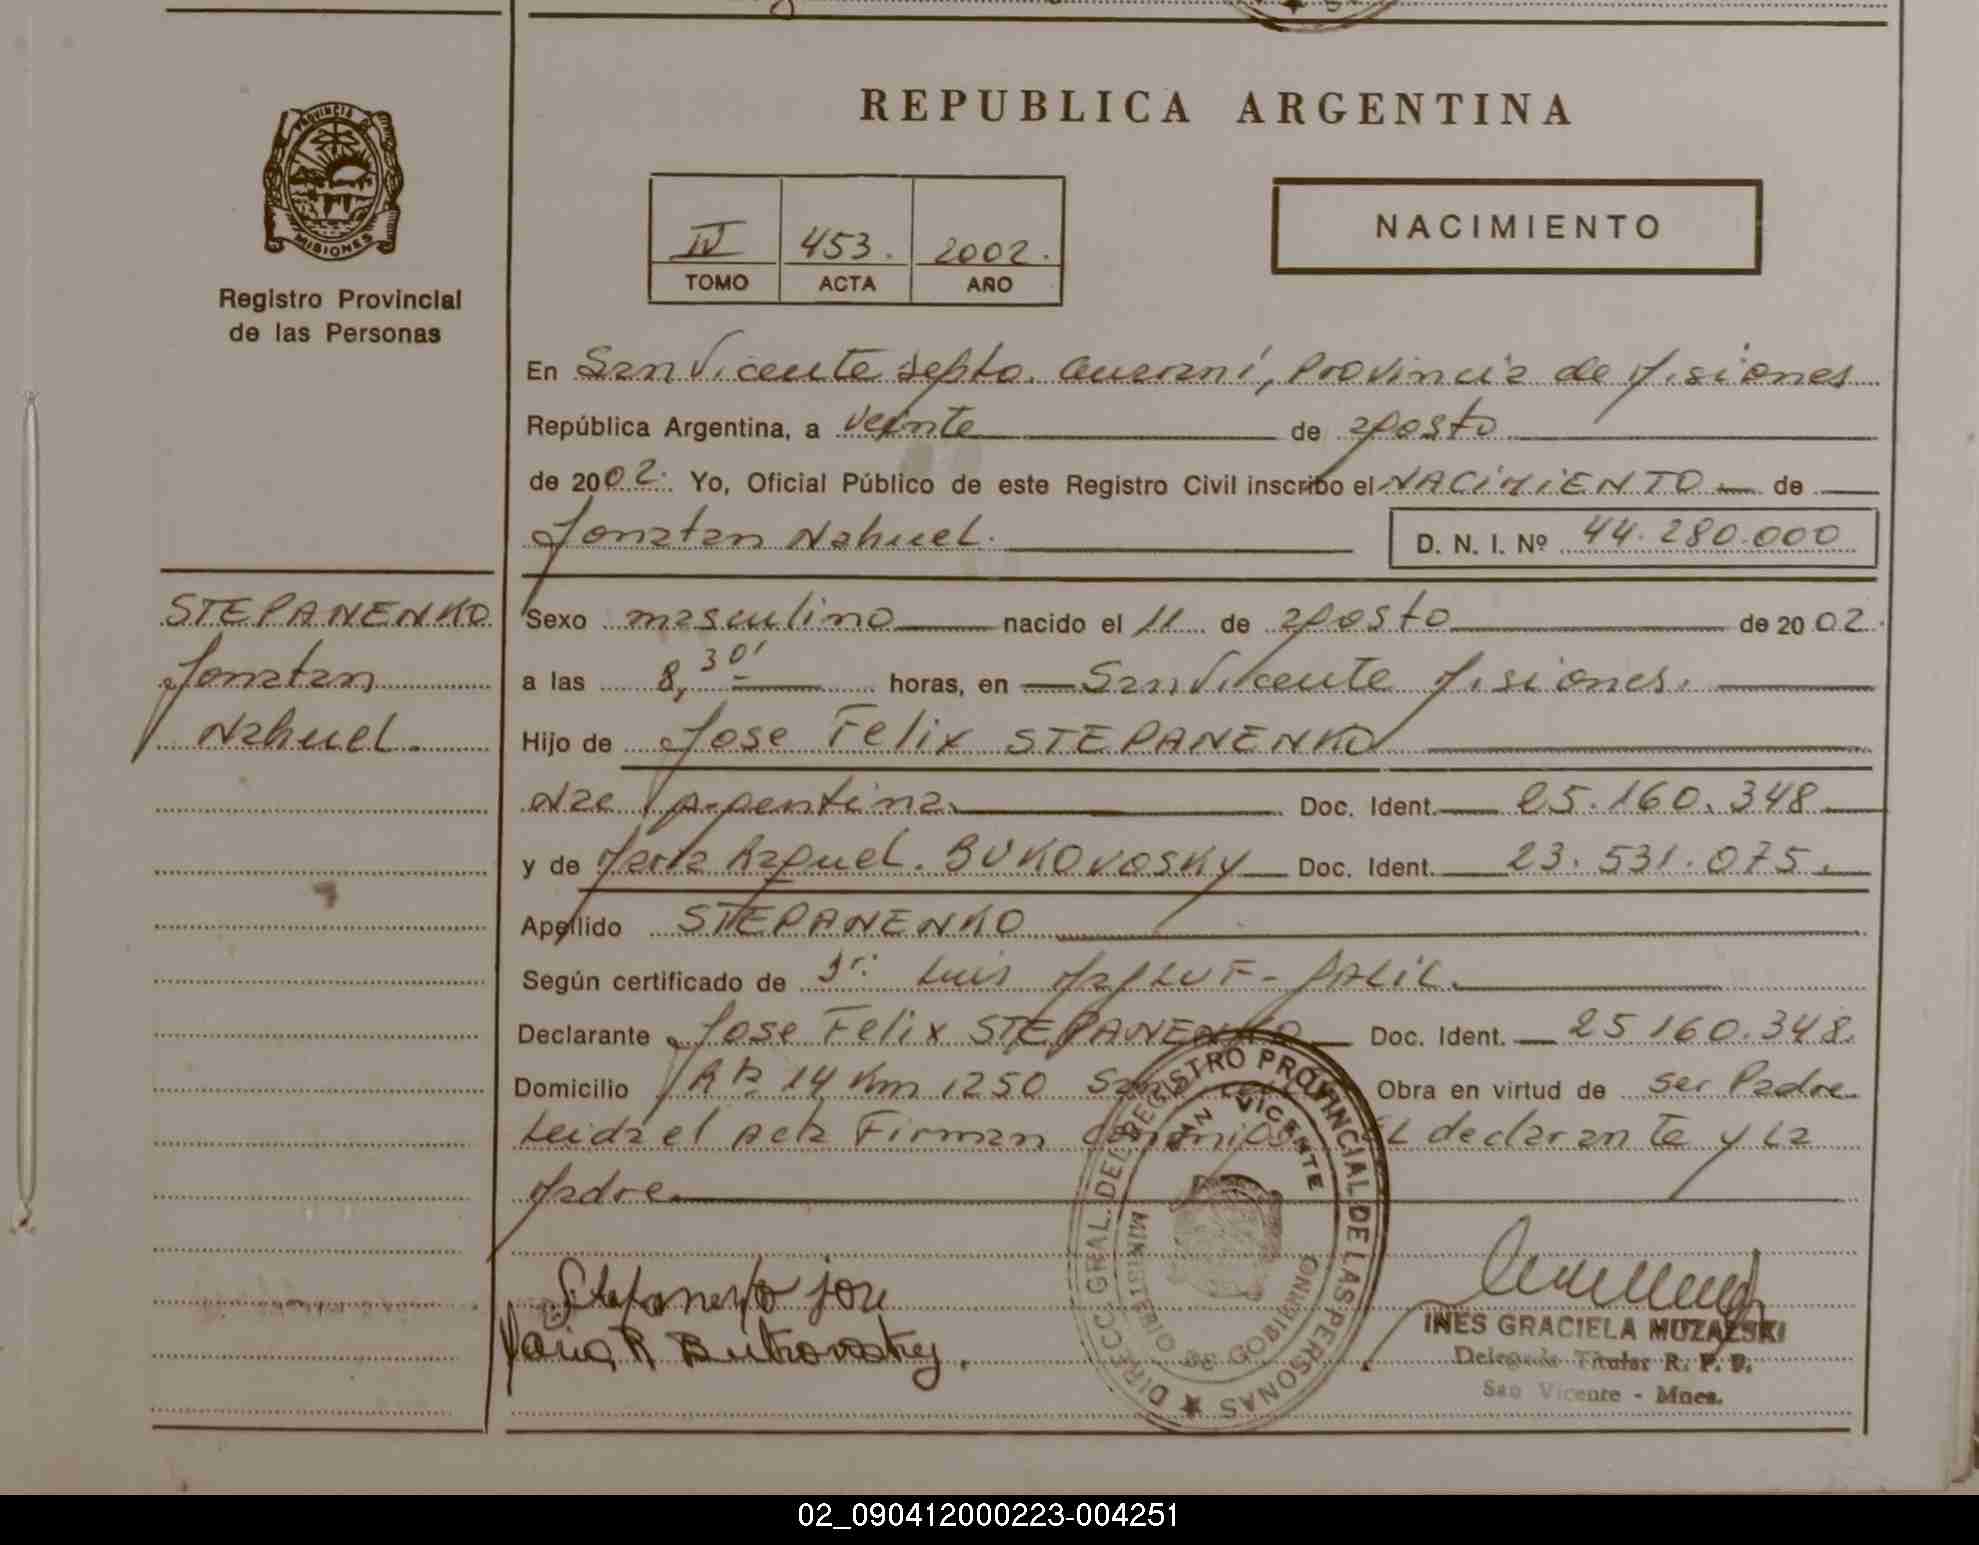 REPUBLICA ARGENTINA
PROVINCIA DE
MISIONES
Registro Provincial
de las Personas
IV 453. 2002.
TOMO ACTA AÑO
NACIMIENTO
En San Vicente depto. Guaraní, Provincia de Misiones
República Argentina, a veinte de agosto
de 2002. Yo, Oficial Público de este Registro Civil inscribo el NACIMIENTO de
Jonatan Nahuel. D. N. I. Nº 44.280.000
STEPANENKO
Jonatan
Nahuel.
Sexo masculino nacido el 11 de agosto de 2002.
a las 8,30' horas, en San Vicente Misiones.
Hijo de Jose Felix STEPANENKO
Nac Argentina. Doc. Ident. 25.160.348
y de Maria Raquel. BUKOVOSKY Doc. Ident. 23.531.075.
Apellido STEPANENKO
Según certificado de Dr: Luis MAJLUF-JALIL.
Declarante Jose Felix STEPANENKO Doc. Ident. 25160.348.
Domicilio Rta 14 Km 1250 San Vicente Obra en virtud de ser Padre
Leida el Acta Firman conmigo EL declarante y La
Madre.
Stefanenko jose
Maria R Bukovosky.
DIRECC. GRAL. DEL REGISTRO PROVINCIAL DE LAS PERSONAS
SAN VICENTE
MINISTERIO DE GOBIERNO
INES GRACIELA MUZALSKI
Delegada Titular R. P. P.
San Vicente - Mnes.
02_090412000223-004251